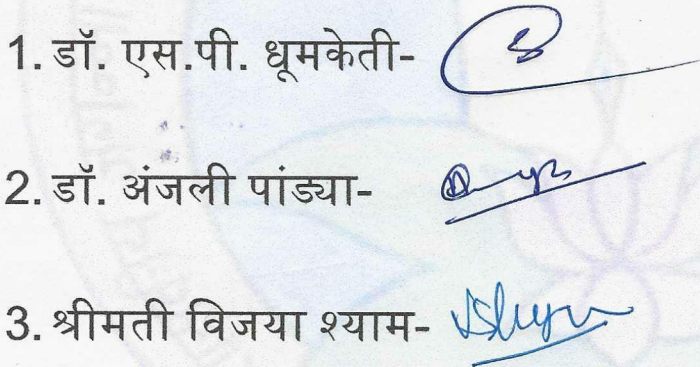 1. डॉ. एस.पी. धूमकेती-
2. डॉ. अंजली पांड्या-
3. श्रीमती विजया श्याम-